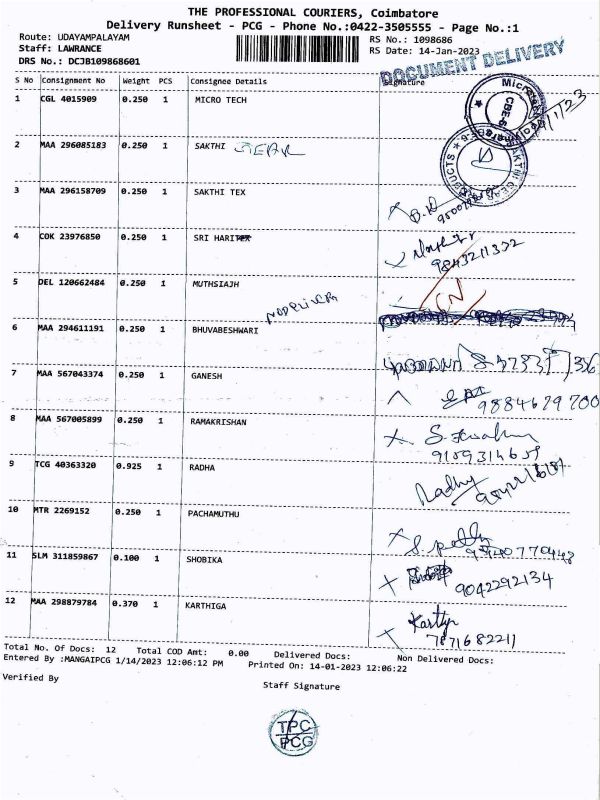 THE PROFESSIONAL COURIERS, Coimbatore
Delivery Runsheet - PCG - Phone No.:0422-3505555 - Page No.:1
Route: UDAYAMPALAYAM
RS No.: 1098686
Staff: LAWRANCE
RS Date: 14-Jan-2023
DRS No.: DCJB109868601
DOCUMENT DELIVERY
S No Consignment No Weight PCS Consignee Details Signature
1 CGL 4015909 0.250 1 MICRO TECH
2 MAA 296085183 0.250 1 SAKTHI GEAR
3 MAA 296158709 0.250 1 SAKTHI TEX
4 COK 23976850 0.250 1 SRI HARITEX
9843211332
5 DEL 120662484 0.250 1 MUTHSIAJH
6 MAA 294611191 0.250 1 BHUVABESHWARI
7 MAA 567043374 0.250 1 GANESH
9884629700
8 MAA 567005899 0.250 1 RAMAKRISHAN
9159314659
9 TCG 40363320 0.925 1 RADHA
Radhy
10 MTR 2269152 0.250 1 PACHAMUTHU
11 SLM 311859867 0.100 1 SHOBIKA
9042292134
12 MAA 298879784 0.370 1 KARTHIGA
7871682211
Total No. Of Docs: 12 Total COD Amt: 0.00 Delivered Docs: Non Delivered Docs:
Entered By :MANGAIPCG 1/14/2023 12:06:12 PM Printed On: 14-01-2023 12:06:22
Verified By
Staff Signature
TPC
PCG